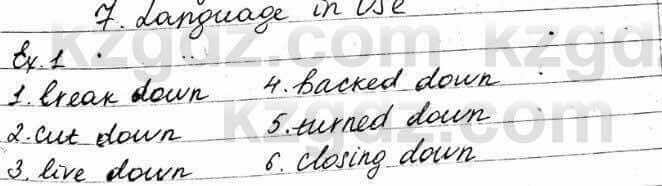 7. Language in Use
Ex. 1
1. break down 4. backed down
2. cut down 5. turned down
3. live down 6. closing down